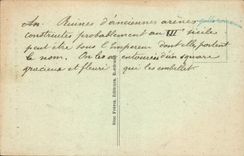 An. Ruines d'anciennes arènes
construites probablement au IIIe siècle
peut être sous l'empereur dont elle portent
le nom. On les a entourées d'un square
gracieux et fleuri que les embellit.
Frères, Editeurs,